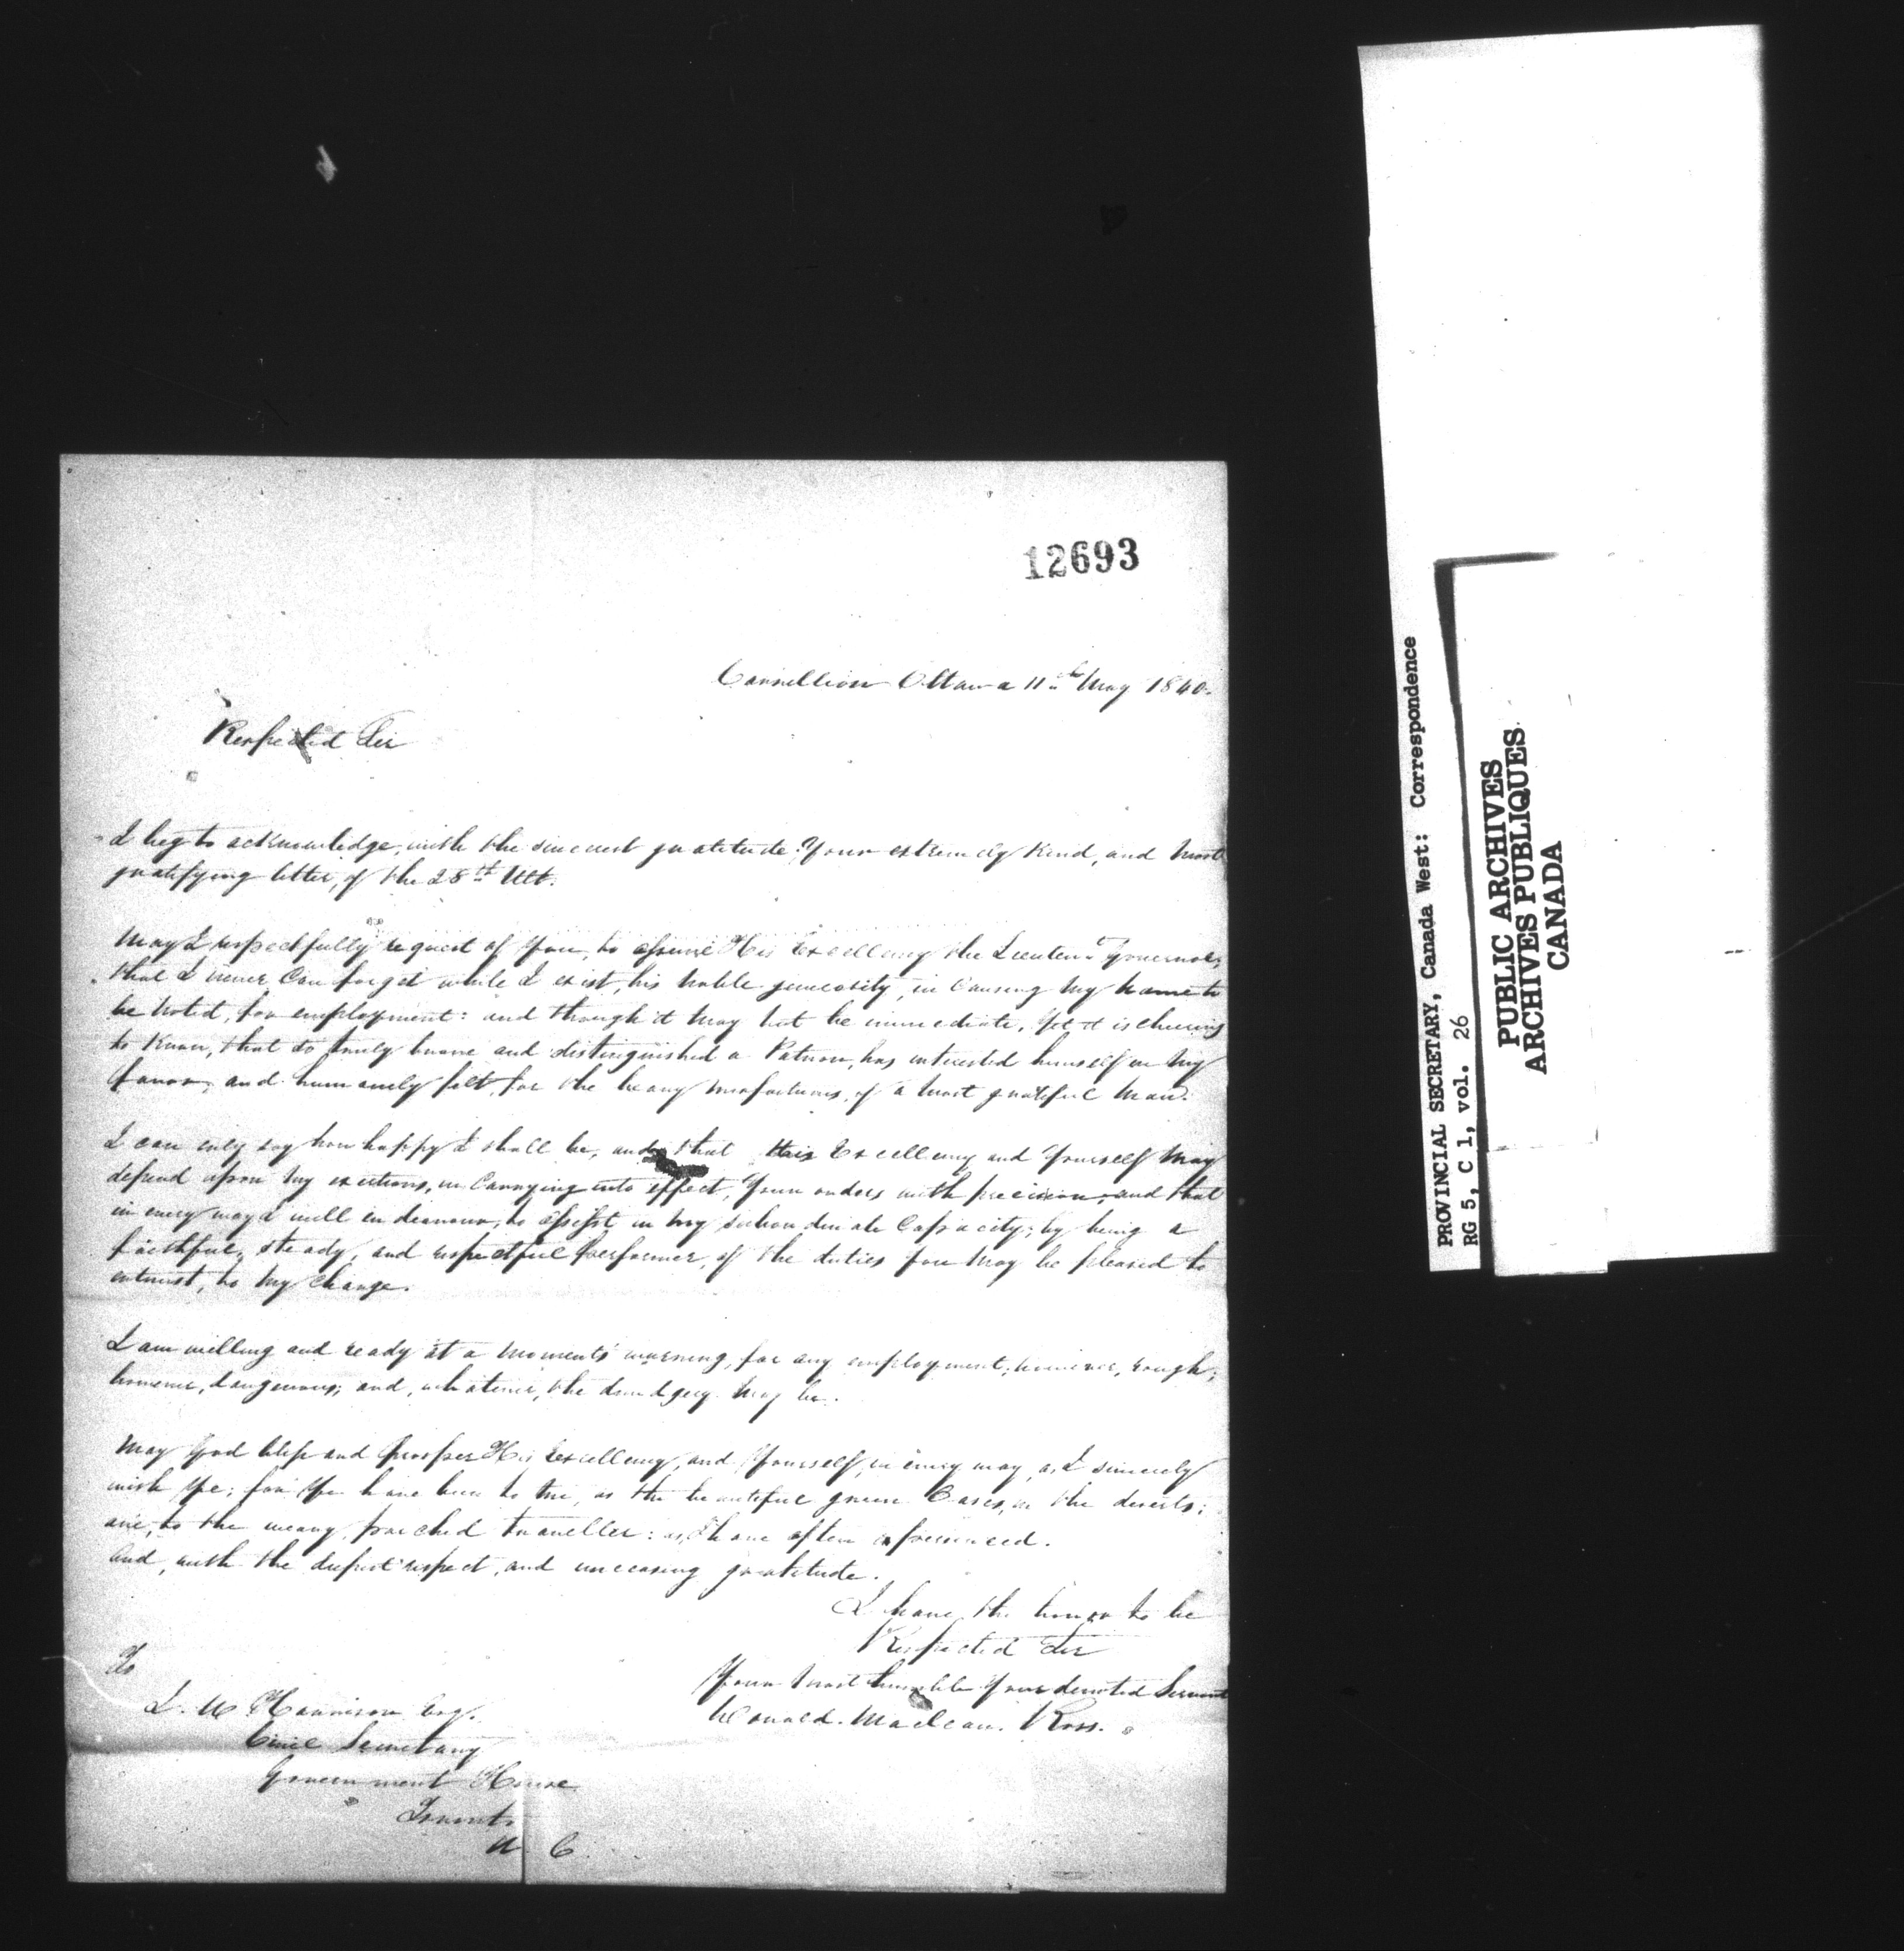 12693
Carrillion Ottawa 11th May 1840.
Respected Sir
I beg to acknowledge, with the sincerest gratitude, Your extremely Kind, and Most
gratifying letter, of the 28th Ult.
May I respectfully request of You, to assure His Excellency the Lieutent Governor,
that I never Can forget while I exist, his Noble generosity, in Causing My Name to
be Noted, for employment: and though it May Not be immediate, Yet it is cheering
to Know, that so truly brave and distinguished a Patron, has interested himself in My
favor, and humanely felt, for the heavy misfortunes, of a Most grateful Man.
I can only say how happy I shall be, and that His Excellency and Yourself May
depend upon My exertions, in Carrying into effect, Your orders with precision, and that
in every way I will endeavour, to assist, in My subordinate Capacity; by being a
faithful, steady, and respectful Performer, of the duties You May be pleased to
entrust, to My Charge.
I am willing and ready at a Moments' warning, for any employment, however, rough;
however, dangerous; and, whatever, the drudgery May be.
May God bless and Prosper His Excellency, and Yourself, in every way, as I sincerely
wish Ye; for Ye have been to Me, as the beautiful green Oases, in the deserts;
are, to the weary, parched traveller: as, I have often experienced.
And, with the deepest respect, and unceasing gratitude.
I have the honor to be
Respected Sir
Your Most humble Your devoted Servant
Donald. Maclean. Ross.
To
S. B. Harrison Esq.
Civil Secretary
Government House
Toronto
U C
PROVINCIAL SECRETARY, Canada West: Correspondence
RG 5, C 1, vol. 26
PUBLIC ARCHIVES
ARCHIVES PUBLIQUES
CANADA